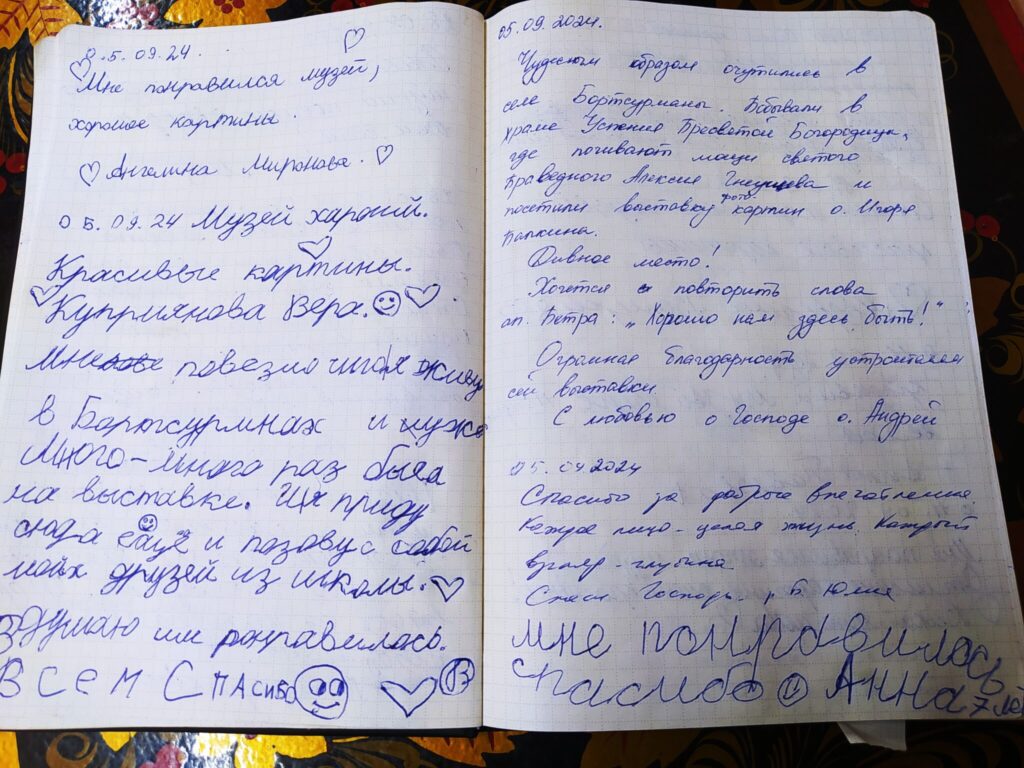 05.09.24.
Мне понравился музей,
хорошие картины.
Ангелина Миронова.
05.09.24 Музей хароший.
Красивые картины.
Куприянова Вера.
Мне повезло што я живу
в Бортсурмнах и уже
Много-много раз была
на выставке. И приду
сюда ещё и позову с собой
моих друзей из школы.
Думаю им понравилось.
Всем Спасибо
В
05.09.2024.
Чудесным образом очутились в
селе Бортсурманы. Побывали в
храме Успения Пресвятой Богородицы,
где почивают мощи святого
праведного Алексия Гнеушева и
посетили выставку фото картин о. Игоря
Палкина.
Дивное место!
Хочется повторить слова
ап. Петра: „Хорошо нам здесь быть!"
Огромная благодарность устроителям
сей выставки.
С любовью о Господе о. Андрей
05.09.2024
Спасибо за доброе впечатление
Каждое лицо - целая жизнь. Каждый
взгляд - глубина
Спаси Господь. Юлия
мне понравилось
спасибо Анна 7 лет